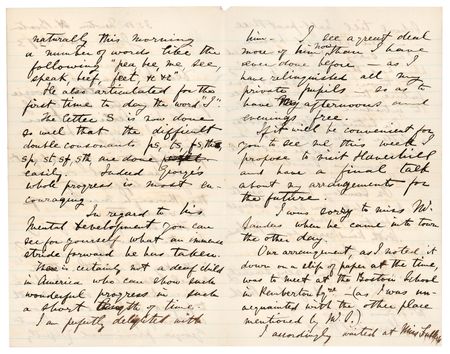 naturally this morning
a number of words like the
following "pea be, me, see,
speak, beef, feet, &c &c"
He also articulated for the
first time to day the word "I".
The letter S is now done
so well that the difficult
double consonants ps, ts, fs, ths,
sp, st, sf, sth, are done
easily. Indeed George's
whole progress is most en-
couraging.
In regard to his
Mental Development you can
see for yourself what an immense
stride forward he has taken.
There is certainly not a deaf child
in America who can show such
wonderful progress in such
a short length of time.
I am perfectly delighted with
him. I see a great deal
more of him now than I have
ever done before — as I
have relinquished all my
private pupils — so as to
have my afternoons and
evenings free.
If it will be convenient for
you to see me this week I
propose to visit Haverhill
and have a final talk
about my arrangements for
the future.
I was sorry to miss Mr.
Sanders when he came in to town
the other day.
Our arrangement, as I noted it
down on a slip of paper at the time,
was to meet at the Boston School
in Pemberton Sqre (as I was un-
acquainted with the other place
mentioned by Mr S.)
I accordingly waited at Miss Fuller's